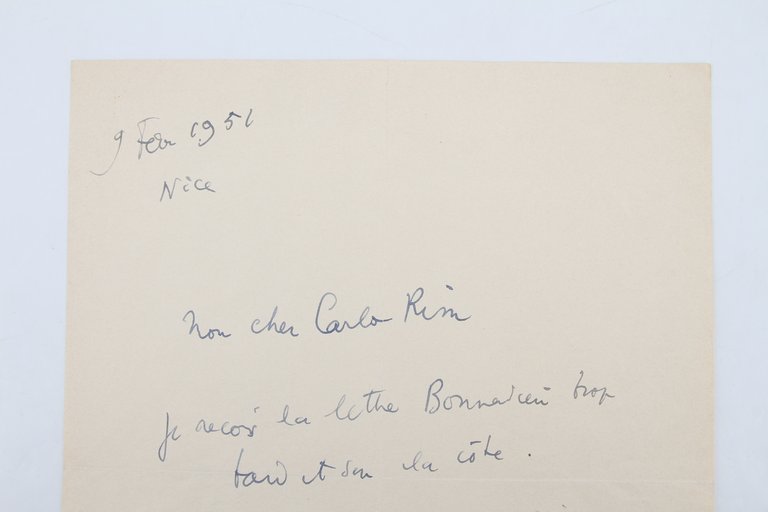 9 Fev 1951
Nice
Mon cher Carlo Rim
Je reçois la lettre Bonnadieu trop
tard et sur la côte.